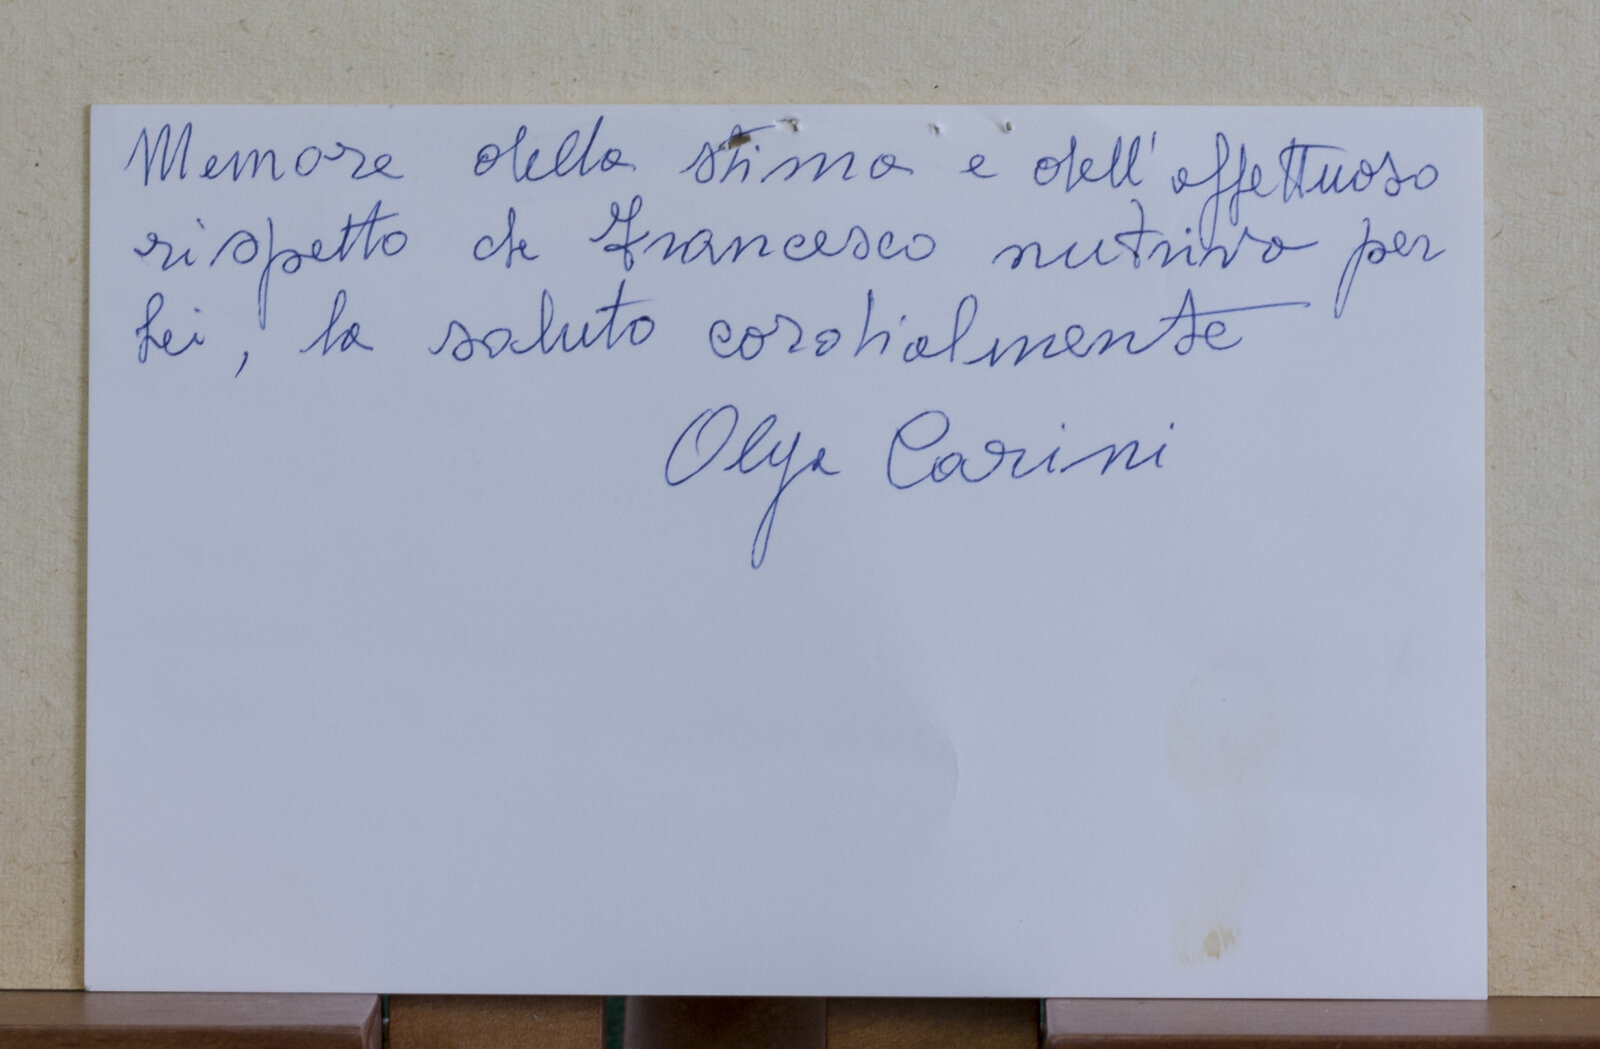 Memore della stima e dell'affettuoso
rispetto che Francesco nutriva per
Lei, la saluto cordialmente
Olga Carini